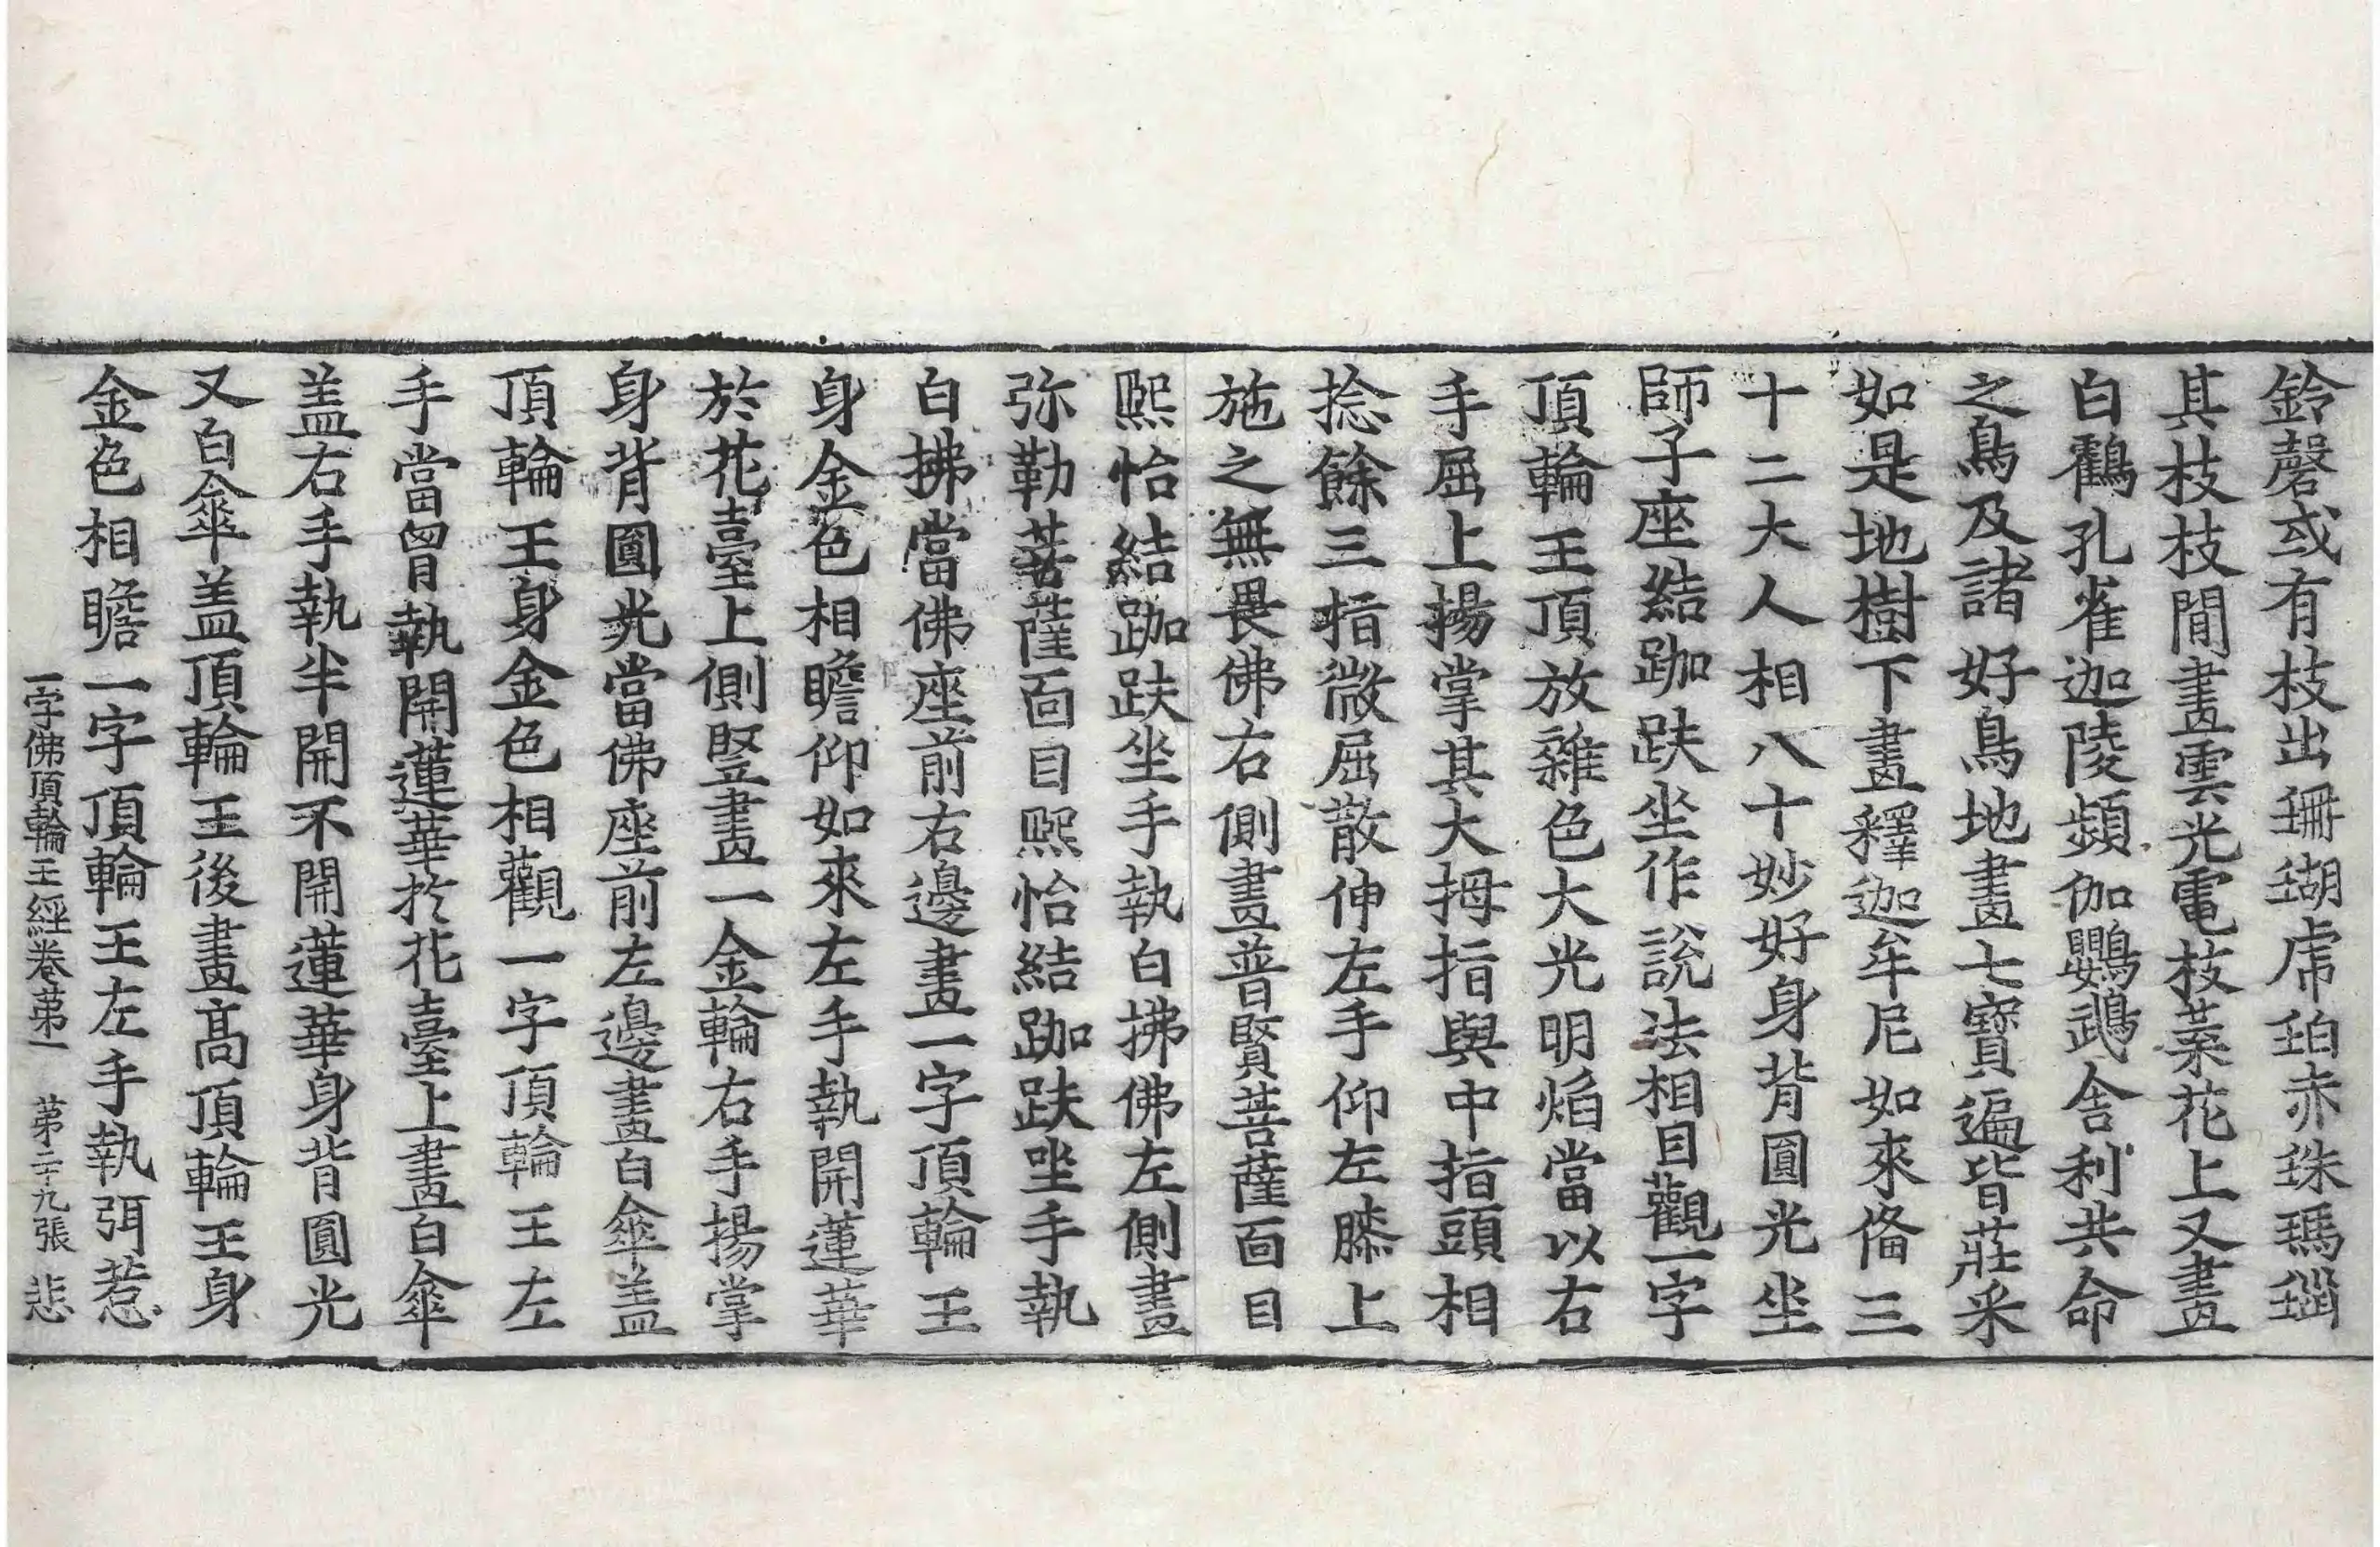 鈴磬或有枝出珊瑚虎珀赤珠瑪瑙
其枝枝閒畫雲光電枝葉花上又畫
白鸖孔雀迦陵頻伽鸚鵡舍利共命
之鳥及諸好鳥地畫七寶遍皆莊釆
如是地樹下畫釋迦牟尼如來俻三
十二大人相八十妙好身背圓光坐
師子座結跏趺坐作說法相目觀一字
頂輪王頂放雜色大光明焰當以右
手屈上揚掌其大拇指與中指頭相
捻餘三指微屈散伸左手仰左膝上
施之無畏佛右側畫普賢菩薩面目
熈怡結跏趺坐手執白拂佛左側畫
弥勒菩薩面目熈怡結跏趺坐手執
白拂當佛座前右邊畫一字頂輪王
身金色相瞻仰如來左手執開蓮華
於花臺上側竪畫一金輪右手揚掌
身背圓光當佛座前左邊畫白傘盖
頂輪王身金色相觀一字頂輪王左
手當胷執開蓮華於花臺上畫白傘
盖右手執半開不開蓮華身背圓光
又白傘盖頂輪王後畫髙頂輪王身
金色相瞻一字頂輪王左手執弭惹
一字佛頂輪王經卷苐一 苐二十九張 悲